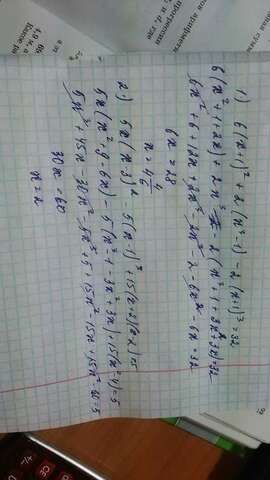 1) 6(x+1)² + 2(x³-1) - 2(x+1)³ = 32
6(x²+1+2x) + 2x³ - 2 - 2(x³+1+3x²+3x)=32
6x² + 6 + 12x + 2x³ - 2x³ - 2 - 6x² - 6x = 32
6x = 28
x = 4 4/6
2) 5x(x-3)² - 5(x-1)³ + 15(x+2)(x-2)=5
5x(x²+9-6x) - 5(x³-1-3x²+3x)+15(x²-4)=5
5x³ + 45x - 30x² - 5x³ + 5 + 15x² - 15x + 15x² - 60 = 5
30x = 60
x = 2
прогрессии
и d, где